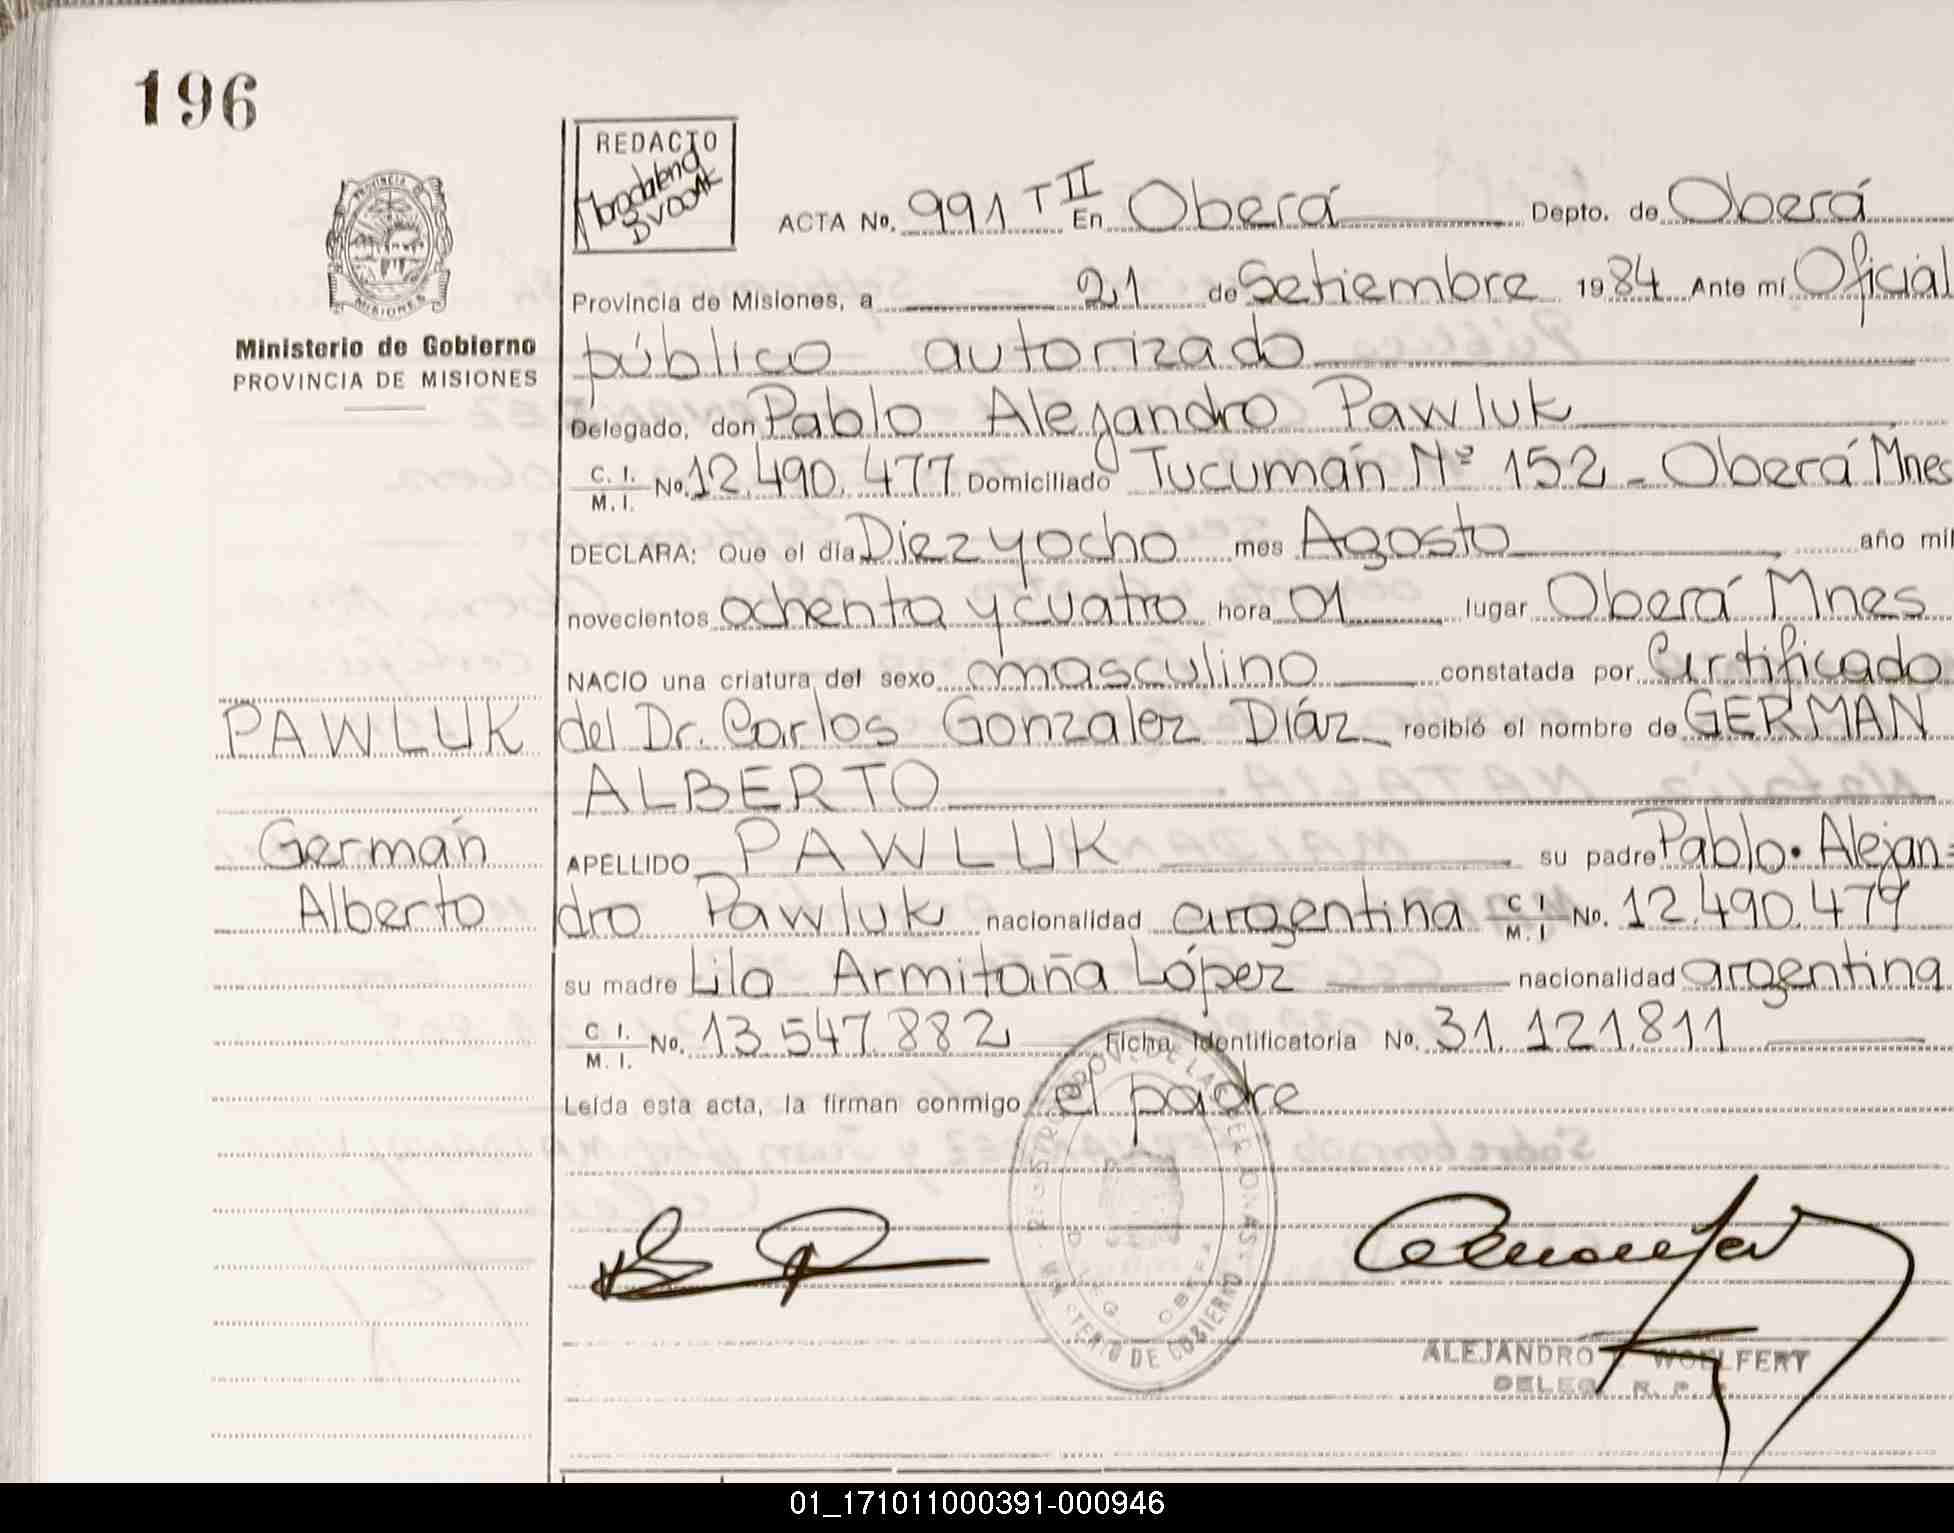 196
REDACTO
PROVINCIA
MISIONES
ACTA No. 991 T II En Oberá Depto. de Oberá
Provincia de Misiones, a 21 de Setiembre 1984 Ante mí Oficial
Ministerio de Gobierno
PROVINCIA DE MISIONES
público autorizado
Delegado, don Pablo Alejandro Pawluk
C. I. M. I. No. 12.490.477 Domiciliado Tucumán Nº 152 - Oberá Mnes
DECLARA: Que el día Diez y ocho mes Agosto año mil
novecientos ochenta y cuatro hora 01 lugar Oberá Mnes
NACIO una criatura del sexo masculino constatada por Certificado
PAWLUK
del Dr. Carlos Gonzalez Díaz recibió el nombre de GERMAN
ALBERTO
Germán
Alberto
APELLIDO PAWLUK su padre Pablo. Alejan=
dro Pawluk nacionalidad argentina C I M. I No. 12.490.479
su madre Lila Armitaña López nacionalidad argentina
C I. M. I. No. 13.547.882 Ficha Identificatoria No. 31.121.811
Leída esta acta, la firman conmigo el padre
ALEJANDRO WOLFERT
01_171011000391-000946